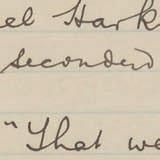 el Hark
seconded
"That we